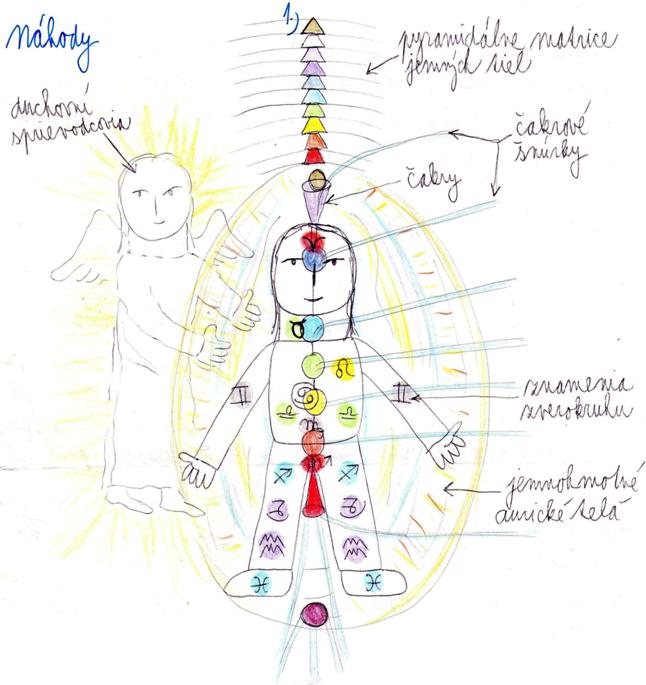 Náhody
1.)
pyramidálne matrice
jemných tiel
duchovní
sprievodcovia
čakrové
šnúrky
čakry
znamenia
zverokruhu
jemnohmotné
aurické telá